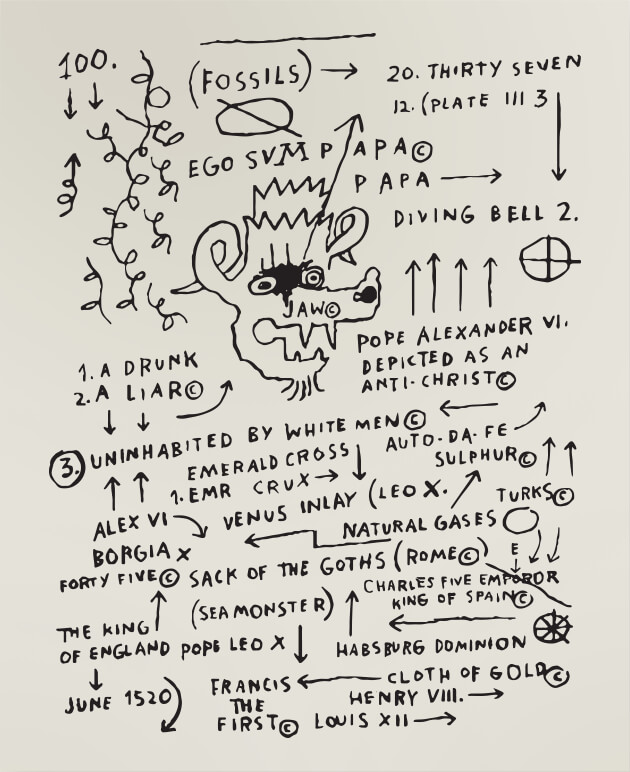 100.
(FOSSILS)
20. THIRTY SEVEN
12. (PLATE III 3
EGO SVM PAPA©
PAPA
DIVING BELL 2.
JAW©
POPE ALEXANDER VI.
DEPICTED AS AN
ANTI-CHRIST©
1. A DRUNK
2. A LIAR©
3. UNINHABITED BY WHITE MEN©
AUTO-DA-FE
SULPHUR©
EMERALD CROSS
1. EMR CRUX
TURKS©
VENUS INLAY (LEO X.
ALEX VI
BORGIA X
NATURAL GASES
E
FORTY FIVE© SACK OF THE GOTHS (ROME©)
CHARLES FIVE EMPOROR
KING OF SPAIN©
(SEA MONSTER)
THE KING
OF ENGLAND POPE LEO X
HABSBURG DOMINION
CLOTH OF GOLD©
JUNE 1520
FRANCIS
THE
FIRST©
HENRY VIII.
LOUIS XII